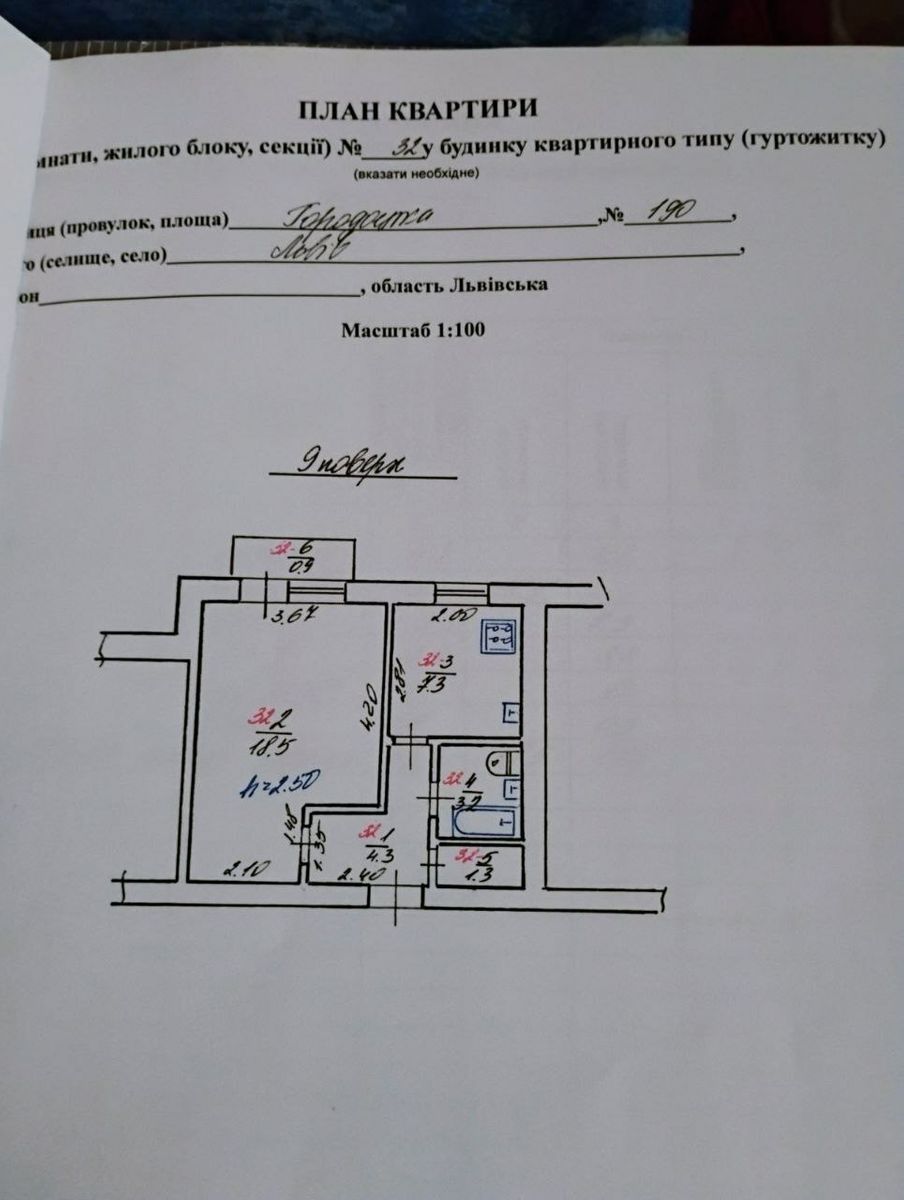 ПЛАН КВАРТИРИ
мнати, жилого блоку, секції) № 32 у будинку квартирного типу (гуртожитку)
(вказати необхідне)
иця (провулок, площа) Городоцька ,№ 190 ,
о (селище, село) Львів ,
он , область Львівська
Масштаб 1:100
9 поверх
32-6
0.9
3.67
2.00
32-3
7.3
2.81
4.20
32 2
18.5
h=2.50
32 4
3.2
1.48
1.35
32 1
4.3
32-5
1.3
2.10
2.40